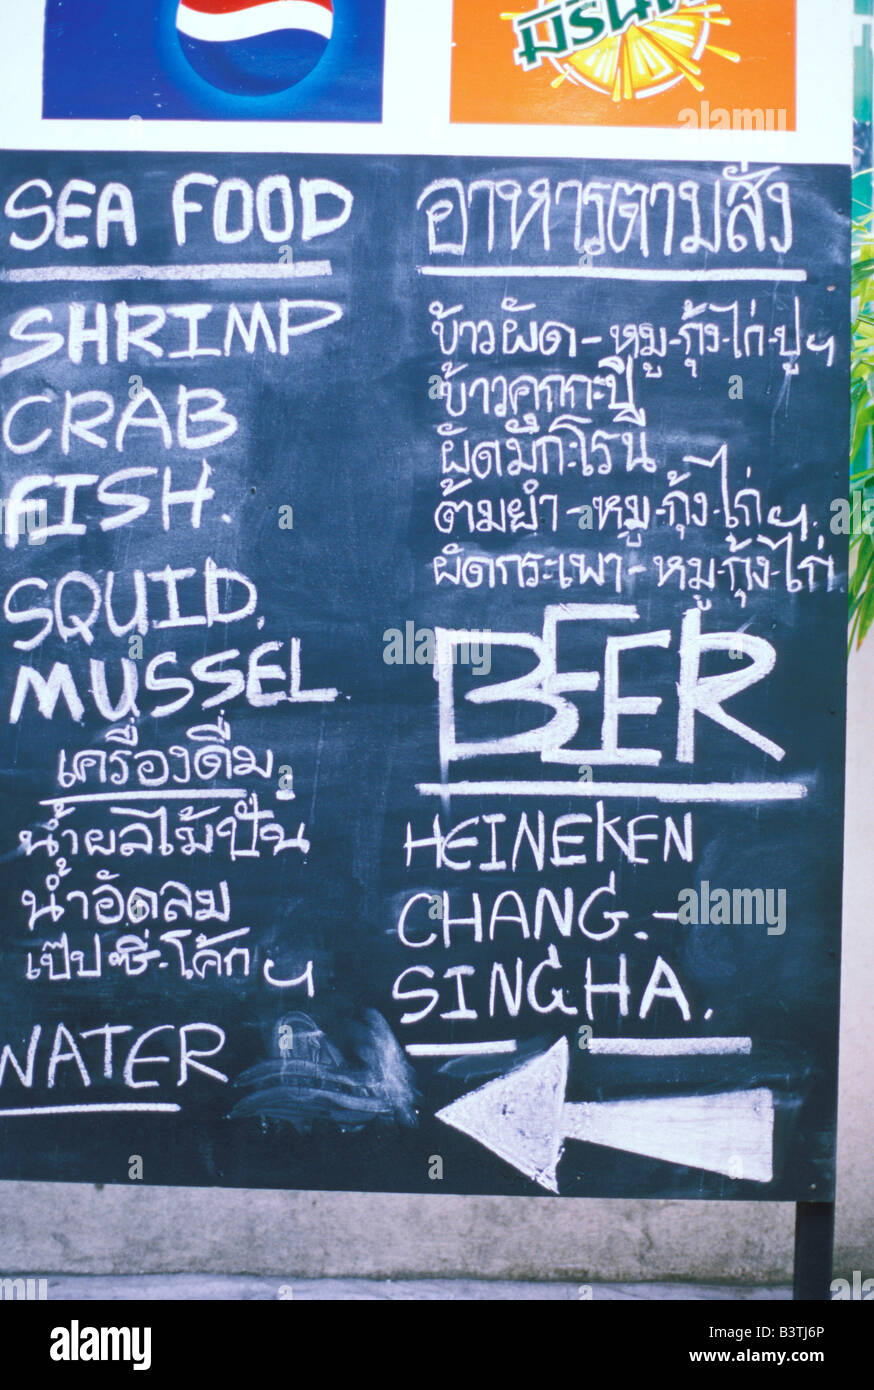 มิรินด้า
SEA FOOD
SHRIMP
CRAB
FISH.
SQUID,
MUSSEL
เครื่องดื่ม
น้ำผลไม้ปั่น
น้ำอัดลม
เป๊ปซี่-โค้ก ฯ
WATER
อาหารตามสั่ง
ข้าวผัด-หมู-กุ้ง-ไก่-ปู ฯ
ข้าวคุกกะปิ
ผัดมักกะโรนี
ต้มยำ-หมู-กุ้ง-ไก่ ฯ.
ผัดกระเพา-หมู-กุ้ง-ไก่
BEER
HEINEKEN
CHANG.-
SINGHA.
alamy
Image ID: B3TJ6P
www.alamy.com